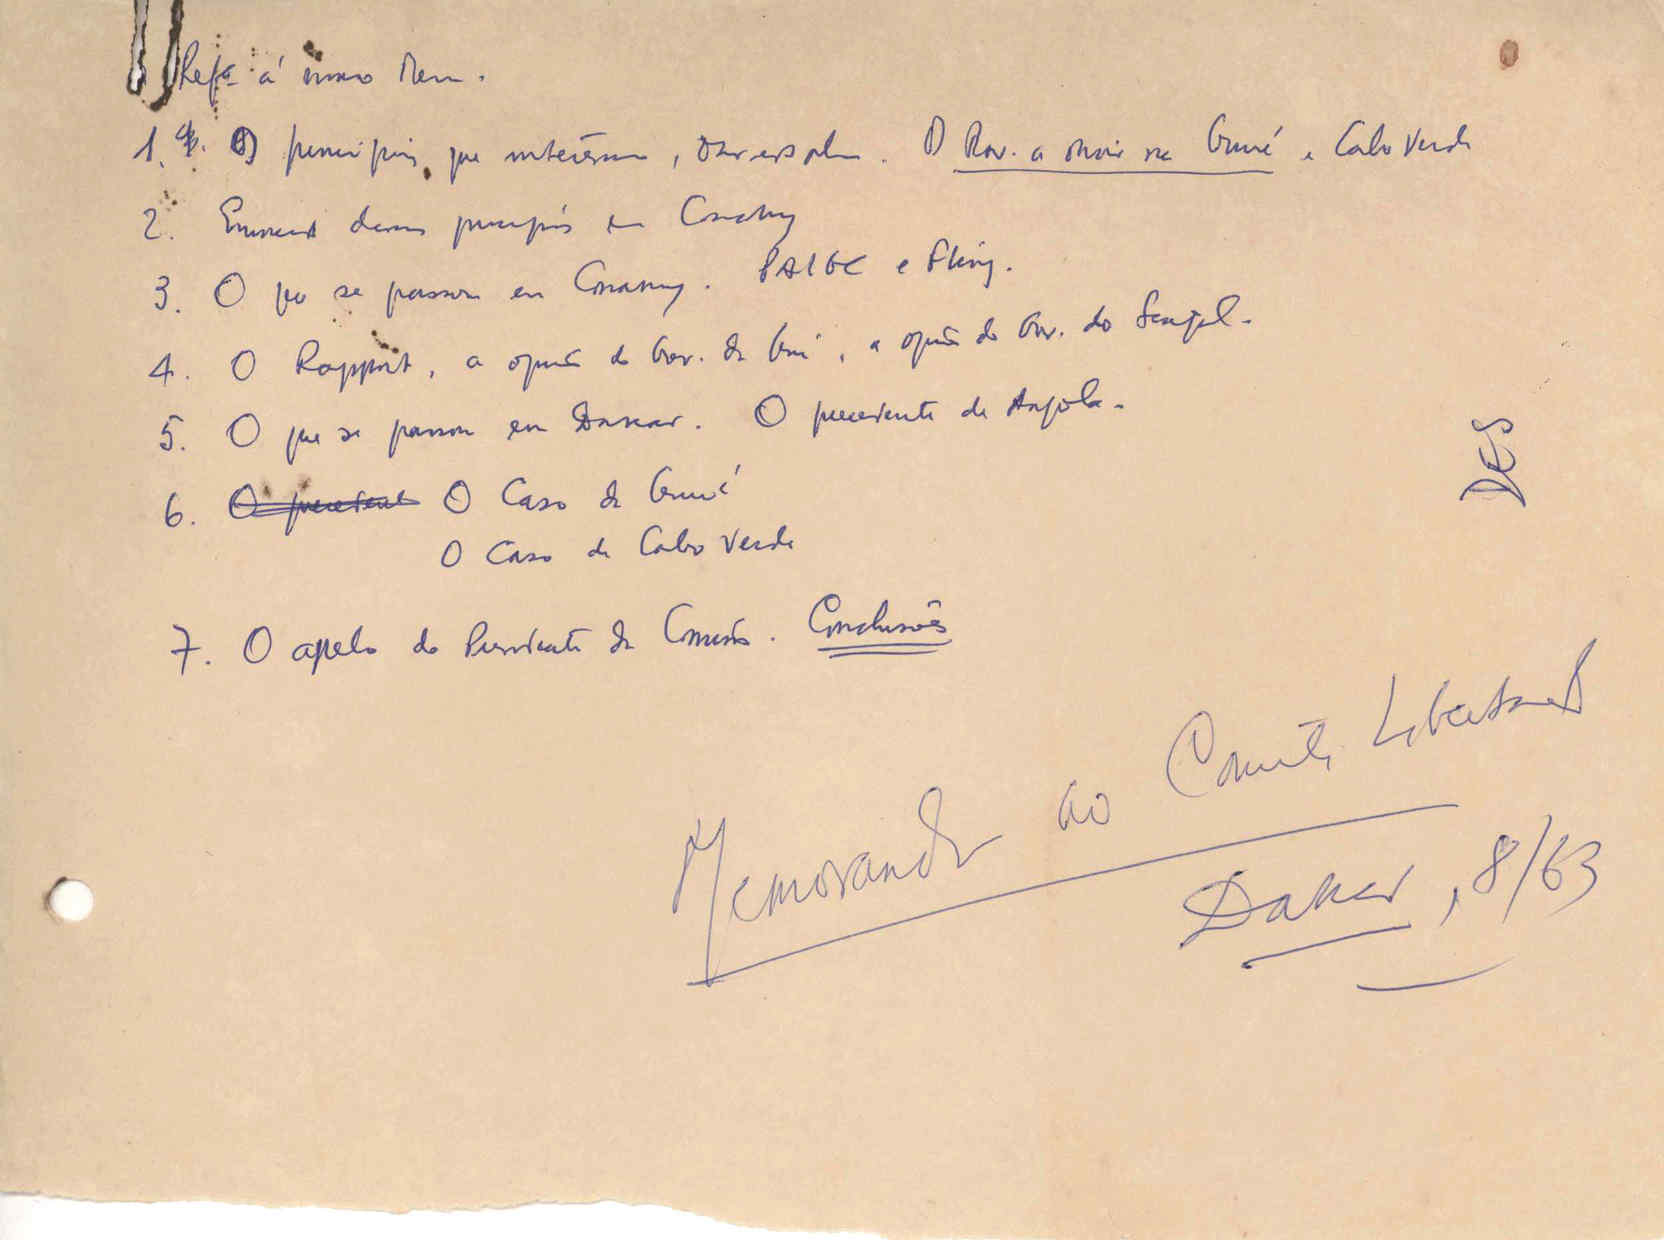 Refª á nosso Mem.
1. Os princípios, que interessam, . O Gov. a na Guiné e Cabo Verde
2. princípios em Conakry
3. O que se passou em Conakry. PAIGC e Fling.
4. O Rapport, a opinião do Gov. da Guiné, a opinião do Gov. do Senegal.
5. O que se passou em Dakar. O precedente de Angola.
6. O precedente O Caso da Guiné
O Caso de Cabo Verde
7. O apelo do Presidente da Comissão. Conclusões
DES
Memorando ao Comité Libertação
Dakar, 8/63